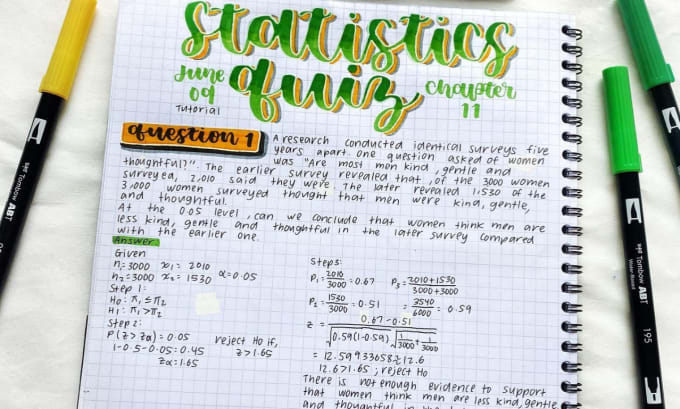 Statistics
quiz
June
09
Tutorial
Chapter
11
question 1
A research conducted identical surveys five
years apart. One question asked of women
was "Are most men kind, gentle and
thoughtful?". The earlier survey revealed that, of the 3000 women
surveyed, 2,010 said they were. The later revealed 1,530 of the
3,000 women surveyed thought that men were kind, gentle,
and thoughtful.
At the 0.05 level, can we conclude that women think men are
less kind, gentle and thoughtful in the later survey compared
with the earlier one.
Answer
Given
n₁=3000 x₁= 2010
n₂=3000 x₂= 1530 α=0.05
Step 1:
H₀: π₁ ≤ π₂
H₁: π₁ > π₂
Step 2:
P(z > zα) = 0.05
1-0.5-0.05 = 0.45
zα = 1.65
reject H₀ if,
z > 1.65
Step 3:
P₁ = 2010/3000 = 0.67
P₂ = 1530/3000 = 0.51
2010+1530/3000+3000
= 3540/6000 = 0.59
z = 0.67 - 0.51/√0.59(1-0.59) √1/3000+1/3000
= 12.59933658 ≈ 12.6
12.6 > 1.65; reject H₀
There is not enough evidence to support
that women think men are less kind, gentle
and thoughtful in the
Tombow ABT
Tombow ABT
Tombow ABT
195